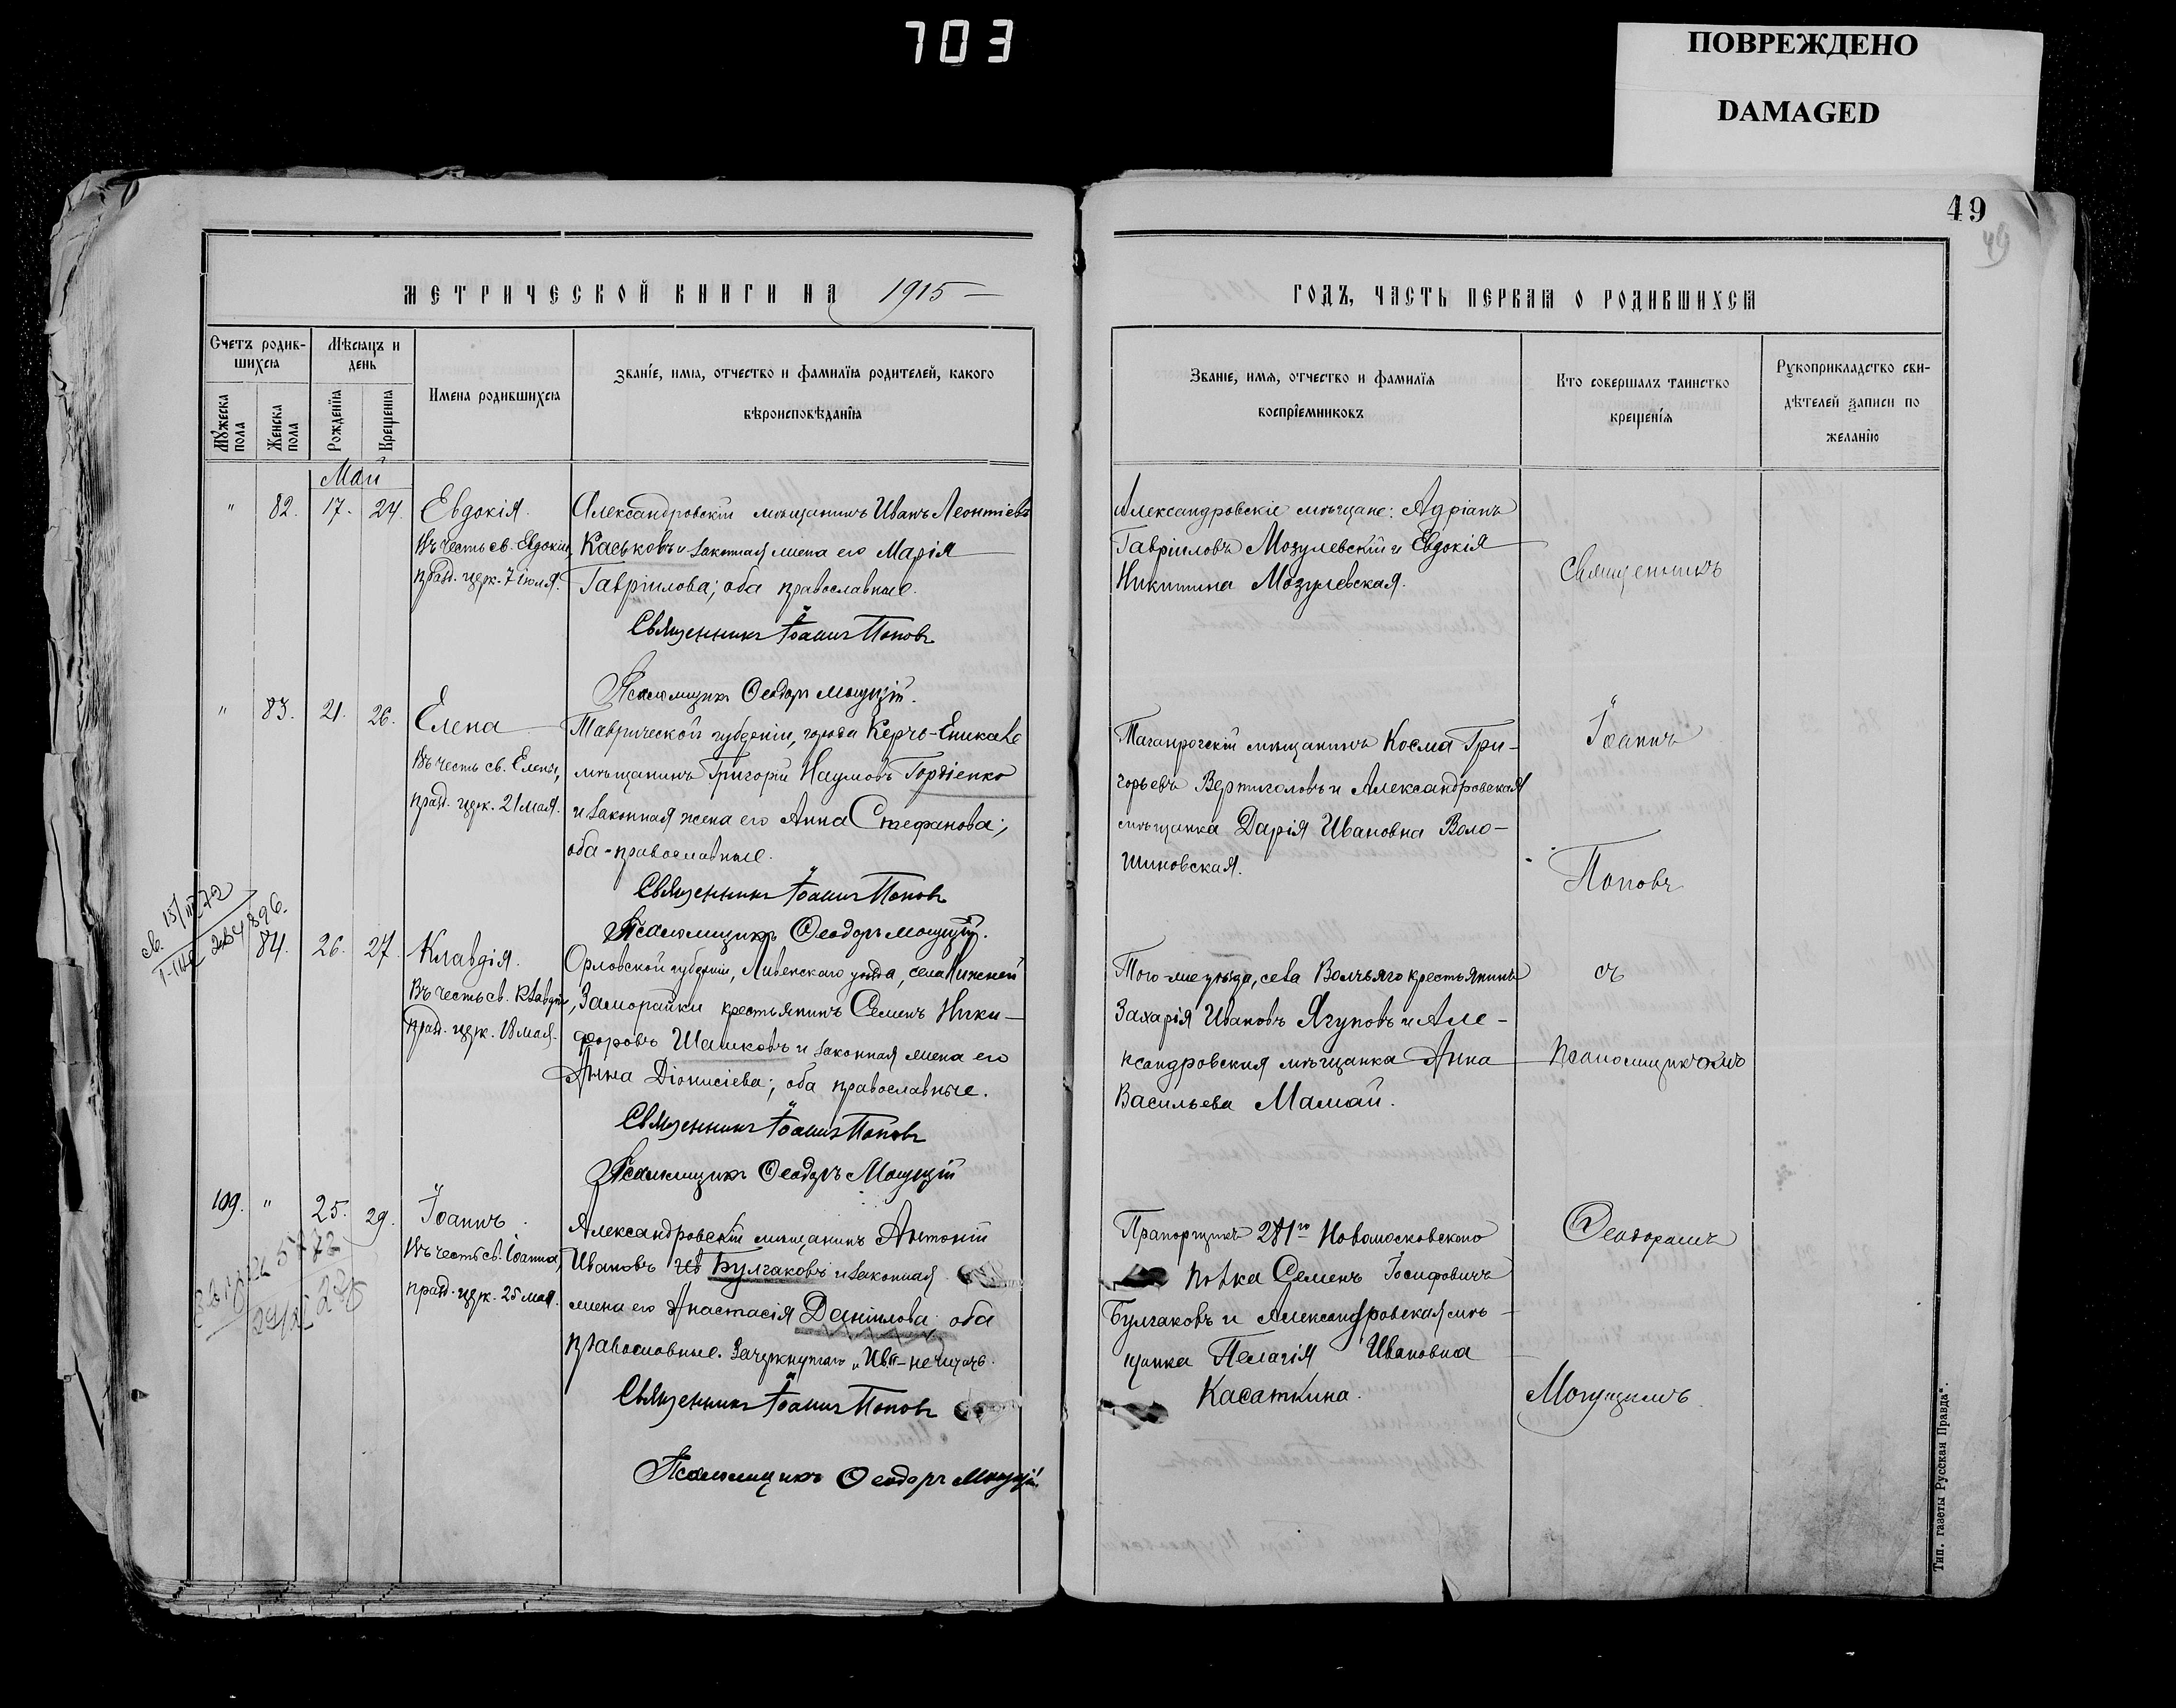 703
ПОВРЕЖДЕНО
DAMAGED
49
49
МЕТРИЧЕСКОЙ КНИГИ НА 1915
ГОДЪ, ЧАСТЬ ПЕРВАЯ О РОДИВШИХСЯ
Счетъ родив-
шихся
Мужеска пола
Женска пола
Мѣсяцъ и
день
Рожденія
Крещенія
Имена родившихся
Званіе, имя, отчество и фамилія родителей, какого
вѣроисповѣданія
Званіе, имя, отчество и фамилія
воспріемниковъ
Кто совершалъ таинство
крещенія
Рукоприкладство сви-
дѣтелей записи по
желанію
Май
" 82. 17. 24.
Евдокія.
Въ честь св. Евдокіи
празд. церк. 7 іюля.
Александровскій мѣщанинъ Иванъ Леонтіевъ
Каськовъ и законная жена его Марія
Гавріилова; оба православные.
Священникъ Іоаннъ Поповъ
Псаломщикъ Ѳеодоръ Могущій.
Александровскіе мѣщане: Адріанъ
Гавріиловъ Мозулевскій и Евдокія
Никитина Мозулевская.
" 83. 21. 26.
Елена
Въ честь св. Елены,
празд. церк. 21 мая.
Таврической губерніи, города Керчь-Еникале
мѣщанинъ Григорій Наумовъ Гордіенко
и законная жена его Анна Стефанова;
оба-православные.
Священникъ Іоаннъ Поповъ
Псаломщикъ Ѳеодоръ Могущій.
Таганрогскій мѣщанинъ Косма Гри-
горьевъ Вертиголовъ и Александровская
мѣщанка Дарія Ивановна Воло-
шиновская.
св. 15/III 72
84. 26. 27.
Клавдія.
Въ честь св. Клавдіи,
празд. церк. 18 мая.
Орловской губерніи, Ливенскаго уѣзда, села Нижней
Заморайки крестьянинъ Семенъ Ники-
форовъ Шашковъ и законная жена его
Анна Діонисіева; оба православные.
Священникъ Іоаннъ Поповъ
Псаломщикъ Ѳеодоръ Могущій
Того-же уѣзда, села Волчьяго крестьянинъ
Захарія Ивановъ Ягуповъ и Але-
ксандровская мѣщанка Анна
Васильева Мамай.
109. " 25. 29.
Іоаннъ.
Въ честь св. Іоанна,
празд. церк. 25 мая.
Александровскій мѣщанинъ Антоній
Ивановъ Булгаковъ и законная
жена его Анастасія Даніилова; оба
православные. Зачеркнутаго „Ив"-не читать.
Священникъ Іоаннъ Поповъ
Псаломщикъ Ѳеодоръ Могущій
Прапорщикъ Новомосковскаго
полка Семенъ Іосифовичъ
Булгаковъ и Александровская мѣ-
щанка Пелагія Ивановна
Касаткина.
Священникъ
Іоаннъ
Поповъ
съ
псаломщикомъ
Ѳеодоромъ
Могущимъ
Тип. газеты „Русская Правда".